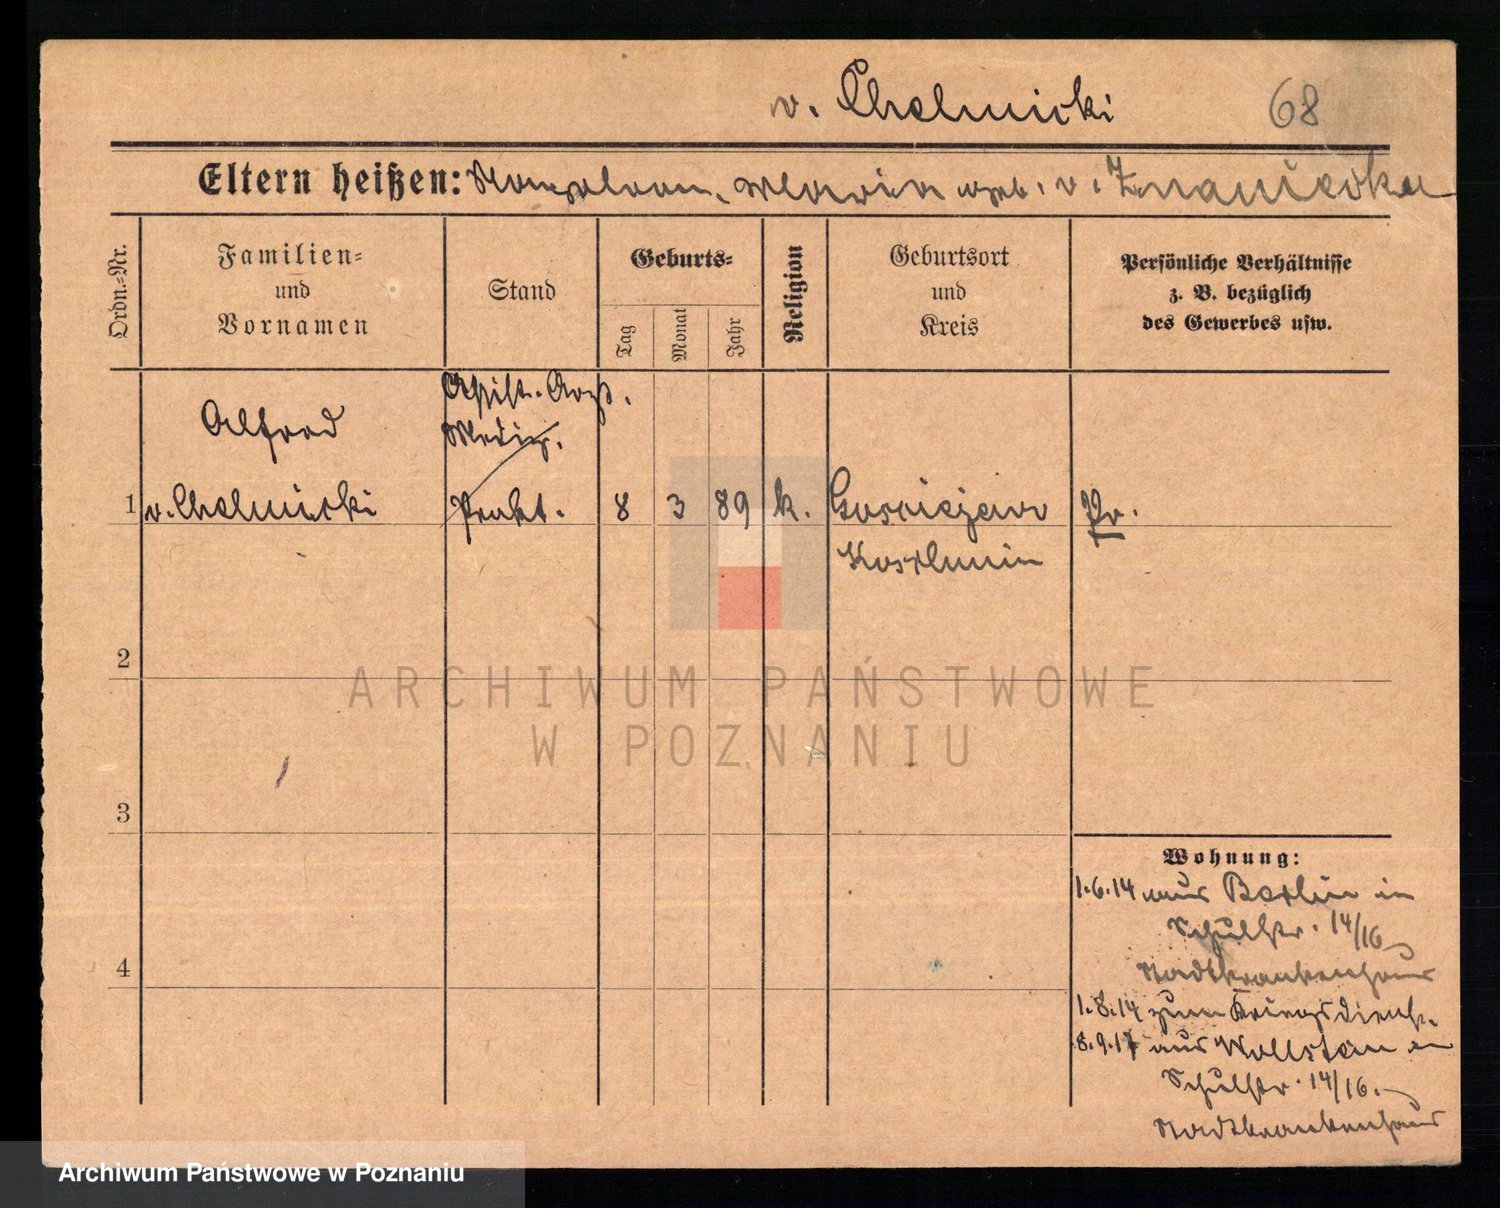 v. Chelmicki 68
Eltern heißen: Maria geb. v. Znaniecka
Ordn.-Nr.
Familien-
und
Vornamen
Stand
Geburts-
Tag
Monat
Jahr
Religion
Geburtsort
und
Kreis
Persönliche Verhältnisse
z. B. bezüglich
des Gewerbes usw.
Assist.-Arzt.
Alfred
Mediz.
1 v. Chelmicki Prakt. 8 3 89 k. Pr.
Koschmin
2
ARCHIWUM PAŃSTWOWE
W POZNANIU
3
Wohnung:
1.6.14 aus Berlin in
Schulstr. 14/16
Stadtkrankenhaus
4
1.8.14 zum Kriegsdienst.
8.9.17 aus Wollstein in
Schulstr. 14/16.
Stadtkrankenhaus
Archiwum Państwowe w Poznaniu